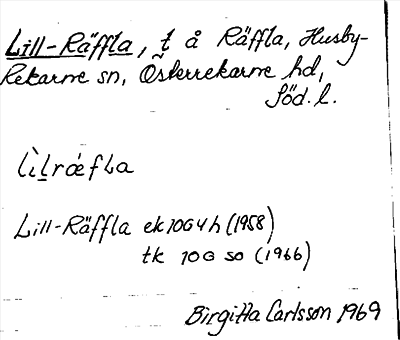 Lill-Räffla, t å Räffla, Husby-
Rekarne sn, Österrekarne hd,
Söd. l.
lìlrǽfLa
Lill-Räffla ek 10G4h (1958)
tk 10G SO (1966)
Birgitta Carlsson 1969